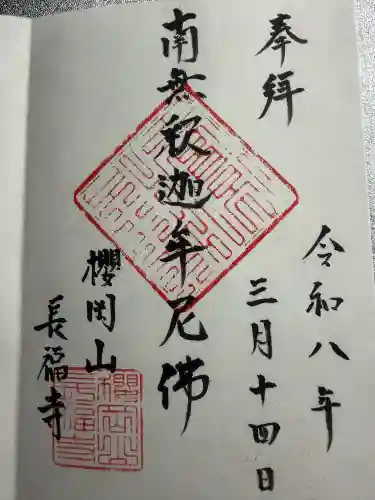 奉拝
令和八年
三月十四日
南無釈迦牟尼佛
櫻岡山
長福寺